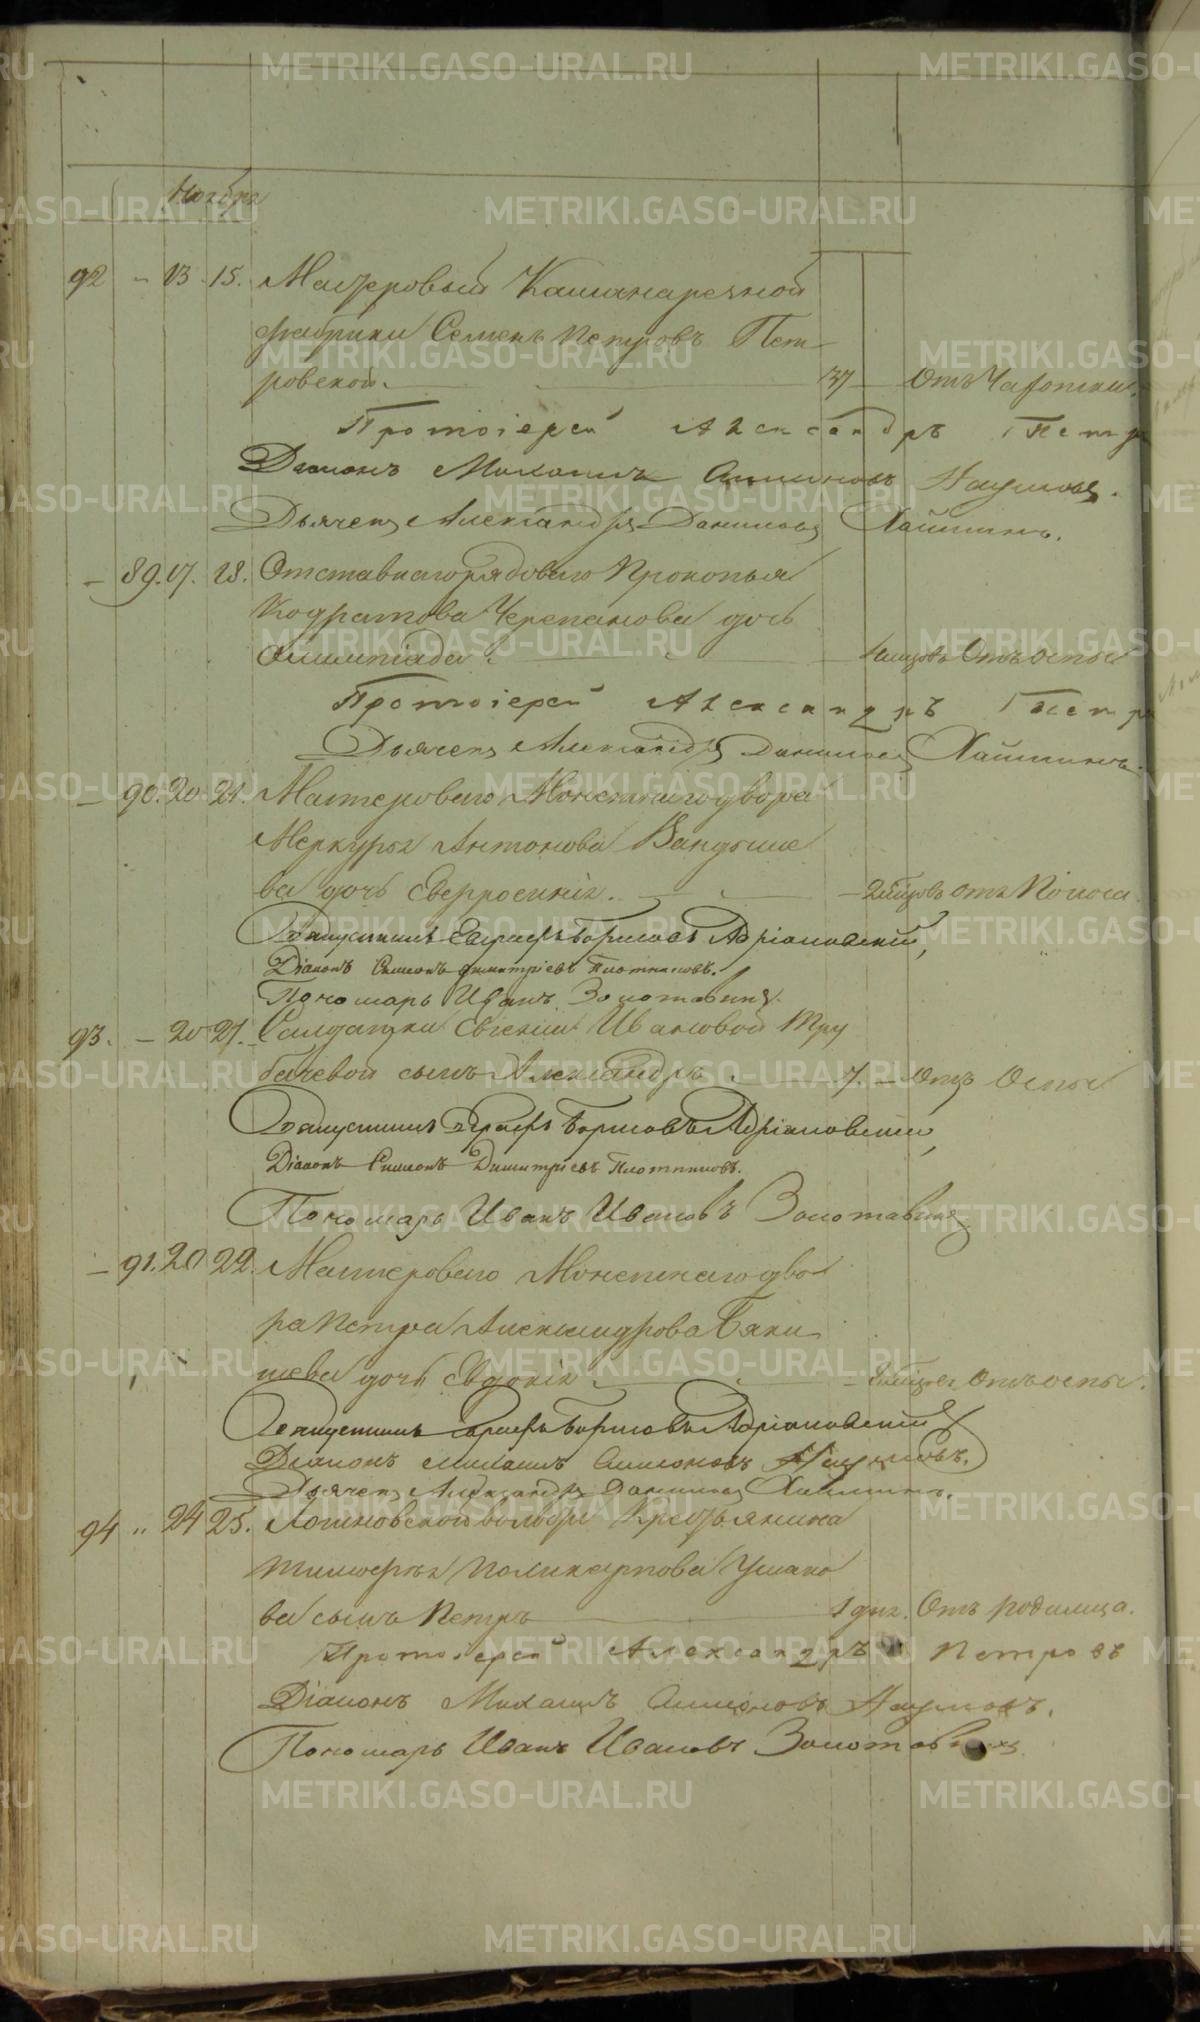 Ноября
92 – 13 15. Мастеровый Камнаресной
фабрики Семенъ Петровъ Пет-
ровской. 37 Отъ Чахотки.
Протоіерей Александръ Петр
Діаконъ Михаилъ Симоновъ Наумовъ.
Дьячекъ Александръ Даниловъ Хаймин.
– 89. 17. 18. Отставнаго рядоваго Прокопья
Кодратова Черепанова дочь
Олимпіада Отъ оспы
Протоіерей Александръ Петр
Дьячекъ Александръ Даниловъ Хайминъ.
– 90. 20 21. Мастероваго Монетнаго двора
Меркурья Антонова Вандыше
ва дочь Ефросинія. 2 мѣсцовъ отъ Поноса.
Евграфъ Борисовъ Адріановскій,
Діаконъ Симеонъ Димитріевъ Плотниковъ.
Пономарь Иванъ Золотавинъ.
93. – 20 21. Салдатки Евгеніи Ивановой Тру
бачевой сынъ Александръ 7. Отъ Оспы
Евграфъ Борисовъ Адріановскій,
Діаконъ Симеонъ Димитріевъ Плотниковъ.
Пономарь Иванъ Ивановъ Золотавинъ
– 91. 20 22. Мастероваго Монетнаго дво
ра Петра Александрова Бяки
шева дочь Евдокія Отъ оспы.
Евграфъ Борисовъ Адріановскій
Діаконъ Михаилъ Симоновъ Наумовъ.
Дьячекъ Александръ Даниловъ Хайминъ.
94 „ 24 25. Логиновской волости Крестьянина
Тимофея Поликарпова Ушако
ва сынъ Петръ 1 дня. Отъ родимца.
Протоіерей Александръ Петровъ
Діаконъ Михаилъ Симоновъ Наумовъ.
Пономарь Иванъ Ивановъ Золотавинъ
METRIKI.GASO-URAL.RU